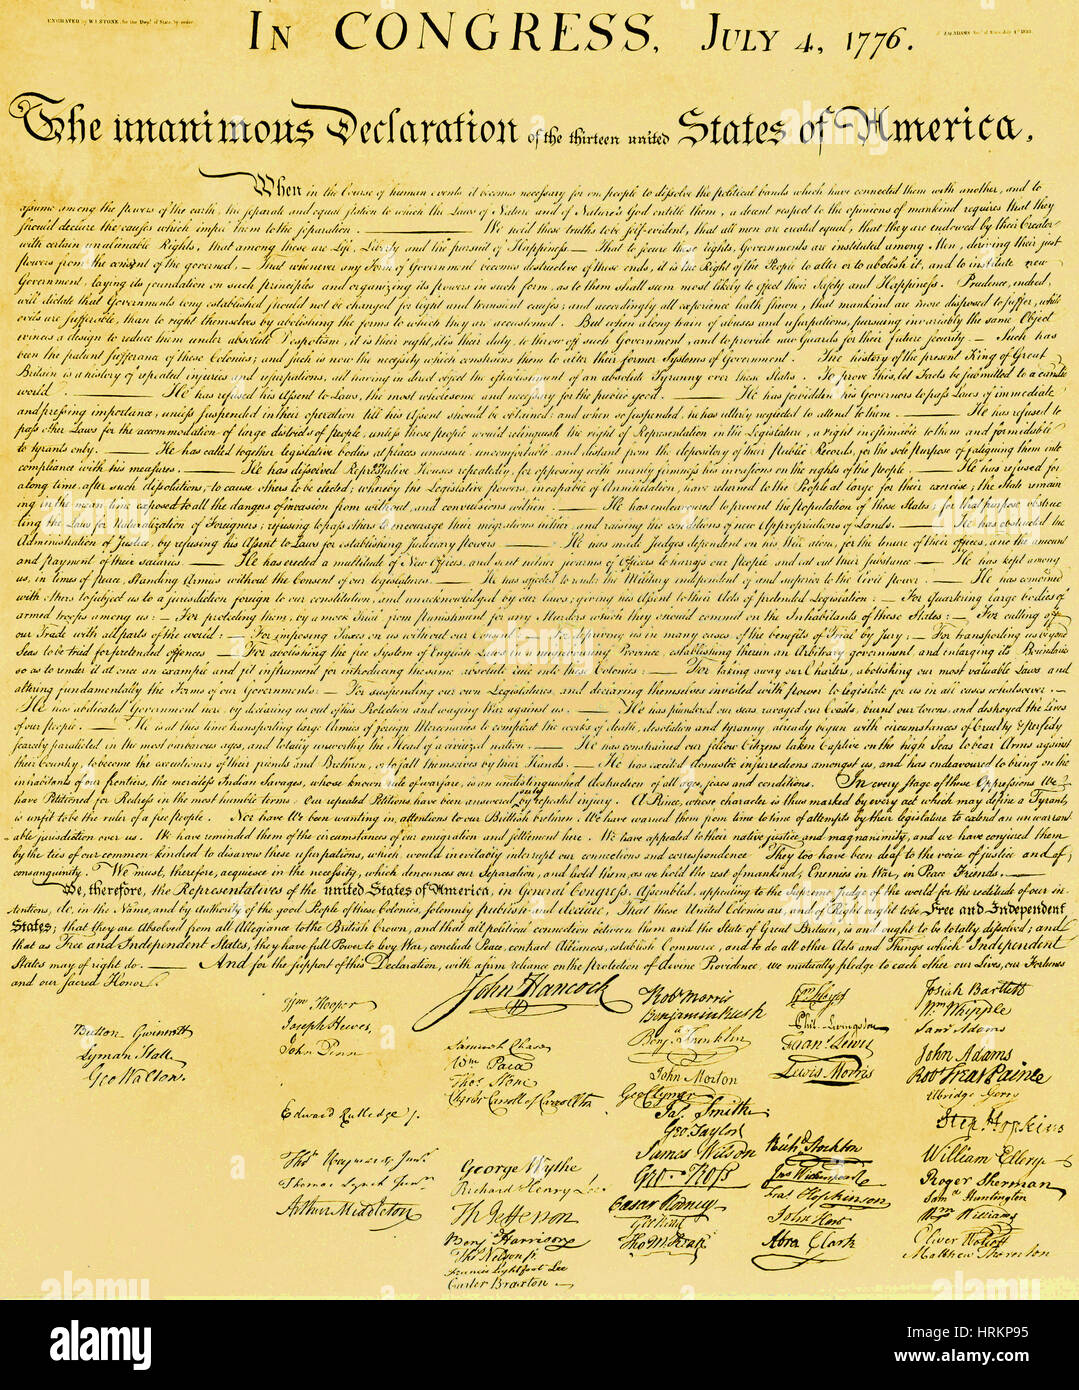 ENGRAVED by W.I.STONE, for the Dept. of State, by order
In CONGRESS, July 4, 1776.
The unanimous Declaration of the thirteen united States of America,
When in the Course of human events it becomes necessary for one people to dissolve the political bands which have connected them with another, and to
assume among the powers of the earth, the separate and equal station to which the Laws of Nature and of Nature's God entitle them, a decent respect to the opinions of mankind requires that they
should declare the causes which impel them to the separation. — We hold these truths to be self-evident, that all men are created equal, that they are endowed by their Creator
with certain unalienable Rights, that among these are Life, Liberty and the pursuit of Happiness — That to secure these rights, Governments are instituted among Men, deriving their just
powers from the consent of the governed, — That whenever any Form of Government becomes destructive of these ends, it is the Right of the People to alter or to abolish it, and to institute new
Government, laying its foundation on such principles and organizing its powers in such form, as to them shall seem most likely to effect their Safety and Happiness. Prudence, indeed,
will dictate that Governments long established should not be changed for light and transient causes; and accordingly all experience hath shewn, that mankind are more disposed to suffer, while
evils are sufferable, than to right themselves by abolishing the forms to which they are accustomed. But when a long train of abuses and usurpations, pursuing invariably the same Object
evinces a design to reduce them under absolute Despotism, it is their right, it is their duty, to throw off such Government, and to provide new Guards for their future security. — Such has
been the patient sufferance of these Colonies; and such is now the necessity which constrains them to alter their former Systems of Government. The history of the present King of Great
Britain is a history of repeated injuries and usurpations, all having in direct object the establishment of an absolute Tyranny over these States. To prove this, let Facts be submitted to a candid
world. — He has refused his Assent to Laws, the most wholesome and necessary for the public good. — He has forbidden his Governors to pass Laws of immediate
and pressing importance, unless suspended in their operation till his Assent should be obtained; and when so suspended, he has utterly neglected to attend to them. — He has refused to
pass other Laws for the accommodation of large districts of people, unless those people would relinquish the right of Representation in the Legislature, a right inestimable to them and formidable
to tyrants only. — He has called together legislative bodies at places unusual, uncomfortable, and distant from the depository of their Public Records, for the sole purpose of fatiguing them into
compliance with his measures. — He has dissolved Representative Houses repeatedly, for opposing with manly firmness his invasions on the rights of the people. — He has refused for
a long time, after such dissolutions, to cause others to be elected; whereby the Legislative powers, incapable of Annihilation, have returned to the People at large for their exercise; the State remain
ing in the mean time exposed to all the dangers of invasion from without, and convulsions within. — He has endeavoured to prevent the population of these States; for that purpose obstruc
ting the Laws for Naturalization of Foreigners; refusing to pass others to encourage their migrations hither, and raising the conditions of new Appropriations of Lands. — He has obstructed the
Administration of Justice, by refusing his Assent to Laws for establishing Judiciary powers. — He has made Judges dependent on his Will alone, for the tenure of their offices, and the amount
and payment of their salaries. — He has erected a multitude of New Offices, and sent hither swarms of Officers to harrass our People, and eat out their substance. — He has kept among
us, in times of peace, Standing Armies without the Consent of our legislatures. — He has affected to render the Military independent of and superior to the Civil power. — He has combined
with others to subject us to a jurisdiction foreign to our constitution, and unacknowledged by our laws; giving his Assent to their Acts of pretended Legislation: — For quartering large bodies of
armed troops among us: — For protecting them, by a mock Trial, from punishment for any Murders which they should commit on the Inhabitants of these States: — For cutting off
our Trade with all parts of the world: — For imposing Taxes on us without our Consent: — For depriving us in many cases, of the benefits of Trial by Jury: — For transporting us beyond
Seas to be tried for pretended offences — For abolishing the free System of English Laws in a neighbouring Province, establishing therein an Arbitrary government, and enlarging its Boundaries
so as to render it at once an example and fit instrument for introducing the same absolute rule into these Colonies: — For taking away our Charters, abolishing our most valuable Laws and
altering fundamentally the Forms of our Governments: — For suspending our own Legislatures, and declaring themselves invested with power to legislate for us in all cases whatsoever. —
He has abdicated Government here, by declaring us out of his Protection and waging War against us. — He has plundered our seas, ravaged our Coasts, burnt our towns, and destroyed the Lives
of our people. — He is at this time transporting large Armies of foreign Mercenaries to compleat the works of death, desolation and tyranny, already begun with circumstances of Cruelty & perfidy
scarcely paralleled in the most barbarous ages, and totally unworthy the Head of a civilized nation. — He has constrained our fellow Citizens taken Captive on the high Seas to bear Arms against
their Country, to become the executioners of their friends and Brethren, or to fall themselves by their Hands. — He has excited domestic insurrections amongst us, and has endeavoured to bring on the
inhabitants of our frontiers, the merciless Indian Savages, whose known rule of warfare, is an undistinguished destruction of all ages, sexes and conditions. In every stage of these Oppressions We
have Petitioned for Redress in the most humble terms: Our repeated Petitions have been answered only by repeated injury. A Prince, whose character is thus marked by every act which may define a Tyrant,
is unfit to be the ruler of a free people. Nor have We been wanting in attentions to our Brittish brethren. We have warned them from time to time of attempts by their legislature to extend an unwarrant
able jurisdiction over us. We have reminded them of the circumstances of our emigration and settlement here. We have appealed to their native justice and magnanimity, and we have conjured them
by the ties of our common kindred to disavow these usurpations, which, would inevitably interrupt our connections and correspondence. They too have been deaf to the voice of justice and of
consanguinity. We must, therefore, acquiesce in the necessity, which denounces our Separation, and hold them, as we hold the rest of mankind, Enemies in War, in Peace Friends. —
We, therefore, the Representatives of the united States of America, in General Congress, Assembled, appealing to the Supreme Judge of the world for the rectitude of our in
tentions, do, in the Name, and by Authority of the good People of these Colonies, solemnly publish and declare, That these United Colonies are, and of Right ought to be Free and Independent
States; that they are Absolved from all Allegiance to the British Crown, and that all political connection between them and the State of Great Britain, is and ought to be totally dissolved; and
that as Free and Independent States, they have full Power to levy War, conclude Peace, contract Alliances, establish Commerce, and to do all other Acts and Things which Independent
States may of right do. — And for the support of this Declaration, with a firm reliance on the protection of divine Providence, we mutually pledge to each other our Lives, our Fortunes
and our Sacred Honor.
Button Gwinnett
Lyman Hall
Geo Walton.
Wm Hooper
Joseph Hewes,
John Penn
Edward Rutledge.
Thos Heyward Junr.
Thomas Lynch Junr.
Arthur Middleton
John Hancock
Samuel Chase
Wm Paca
Thos Stone
Charles Carroll of Carrollton
George Wythe
Richard Henry Lee
Th Jefferson
Benj Harrison
Thos Nelson jr
Francis Lightfoot Lee
Carter Braxton
Robt Morris
Benjamin Rush
Benj Franklin
John Morton
Geo Clymer
Jas Smith
Geo Taylor
James Wilson
Geo Ross
Caesar Rodney
Geo Read
Tho M:Kean
Wm Floyd
Phil. Livingston
Frans Lewis
Lewis Morris
Richd Stockton
Jno Witherspoon
Fras Hopkinson
John Hart
Abra Clark
Josiah Bartlett
Wm Whipple
Saml Adams
John Adams
Robt Treat Paine
Elbridge Gerry
Step. Hopkins
William Ellery
Roger Sherman
Saml Huntington
Wm Williams
Oliver Wolcott
Matthew Thornton
alamy
Image ID: HRKP95
www.alamy.com